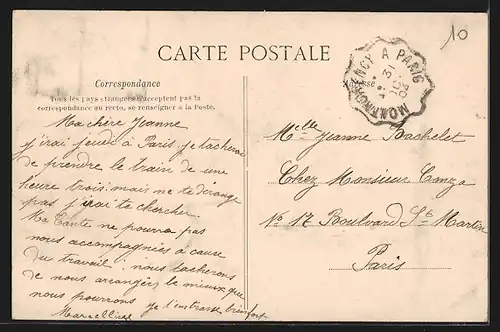 10
CARTE POSTALE
MONTMORENCY A PARIS
31
OCT
05
Correspondance
Tous les pays étrangers n'acceptent pas la
correspondance au recto, se renseigner à la Poste.
Adresse
Ma chère Jeanne
j'irai jeudi à Paris je tacherai
de prendre le train de une
heure trois mais ne te dérange
pas j'irai te chercher.
Ma tante ne pourra pas
nous accompagnées à cause
du travail, nous tacherons
de nous arranger le mieux que
nous pourrons je t'embrasse bien fort
Marcelline
Melle Jeanne Bachelet
Chez Monsieur
No 17 Boulvard St Martin
Paris